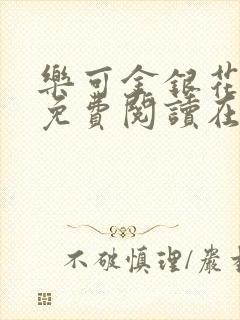 樂可金銀花
免費閱讀在
不破慎理/嚴